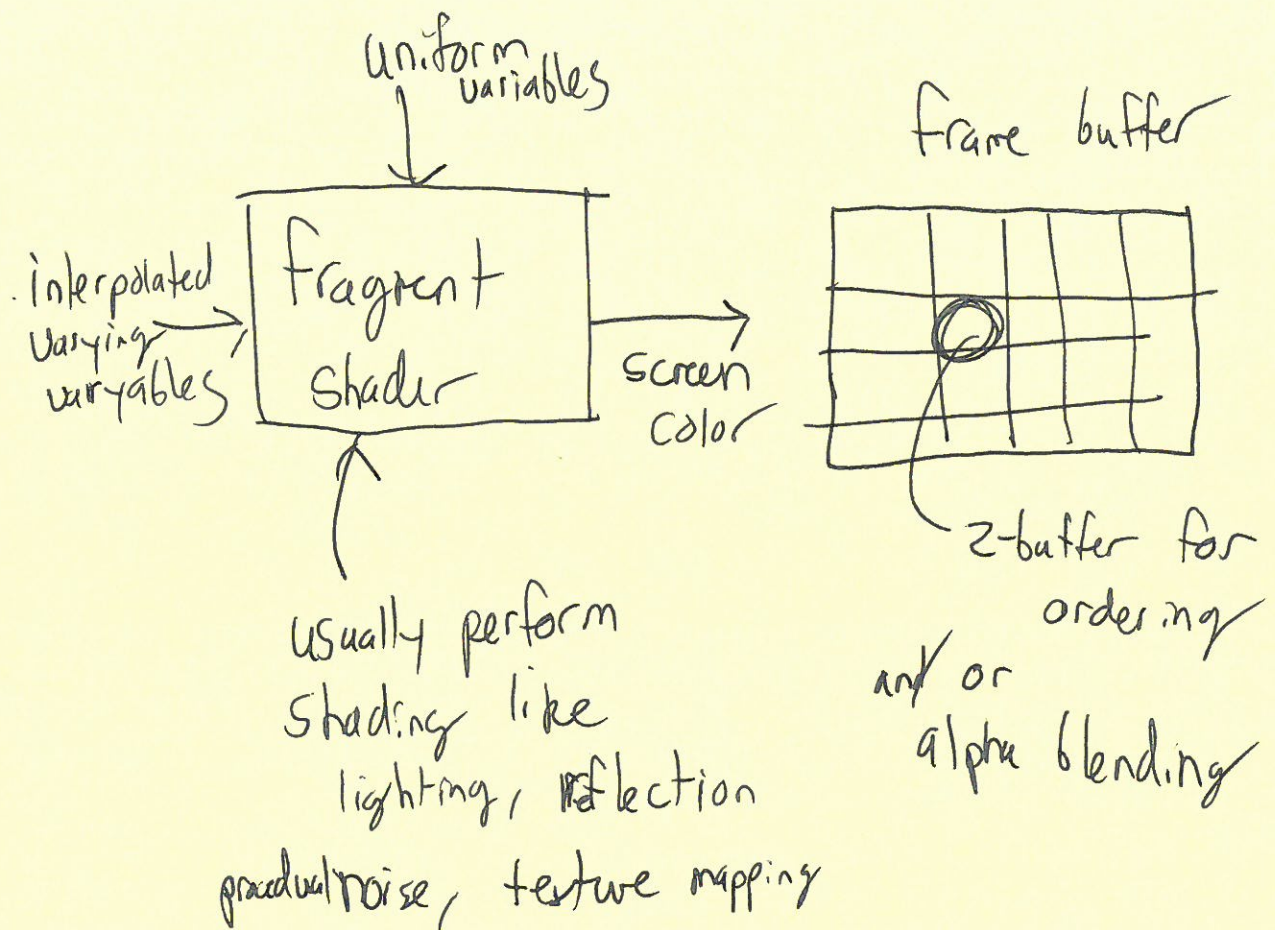 uniform
variables
frame buffer
interpolated
varying
varyables
fragment
shader
screen
color
z-buffer for
ordering
and/or
alpha blending
usually perform
shading like
lighting, reflection
procedural noise, texture mapping